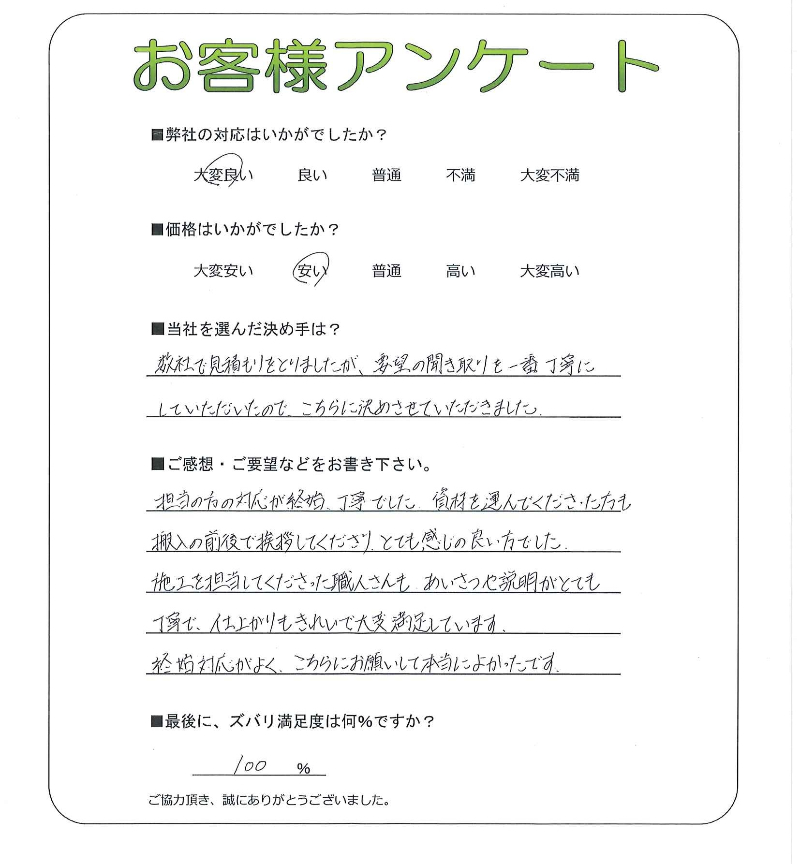 お客様アンケート
■弊社の対応はいかがでしたか？
大変良い 良い 普通 不満 大変不満
■価格はいかがでしたか？
大変安い 安い 普通 高い 大変高い
■当社を選んだ決め手は？
数社で見積もりをとりましたが、要望の聞き取りを一番丁寧に
していただいたので、こちらに決めさせていただきました。
■ご感想・ご要望などをお書き下さい。
担当の方の対応が終始、丁寧でした。資材を運んでくださった方も
搬入の前後で挨拶してくださり、とても感じの良い方でした。
施工を担当してくださった職人さんも、あいさつや説明がとても
丁寧で、仕上がりもきれいで大変満足しています。
終始対応がよく、こちらにお願いして本当によかったです。
■最後に、ズバリ満足度は何%ですか？
100 %
ご協力頂き、誠にありがとうございました。